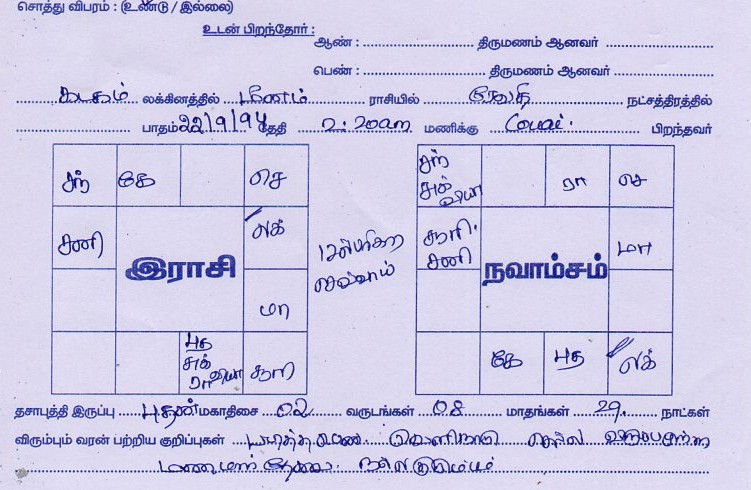 சொத்து விபரம் : (உண்டு / இல்லை)
உடன் பிறந்தோர் :
ஆண் : திருமணம் ஆனவர்
பெண் : திருமணம் ஆனவர்
கடகம் லக்கினத்தில் மீனம் ராசியில் ரேவதி நட்சத்திரத்தில்
பாதம் 22/9/94 தேதி 2.20am மணிக்கு Covai. பிறந்தவர்
சந் கே செ
சனி லக்
இராசி
மா
புத சுக் ரா வியா சூரி
சந் சுக் வியா ரா செ
சூரி. சனி மா
நவாம்சம்
கே புத லக்
தசாபுத்தி இருப்பு புதன் மகாதிசை 02 வருடங்கள் 08 மாதங்கள் 29. நாட்கள்
விரும்பும் வரன் பற்றிய குறிப்புகள் படித்த
மணமகன் தேவை. நல்ல குடும்பம்